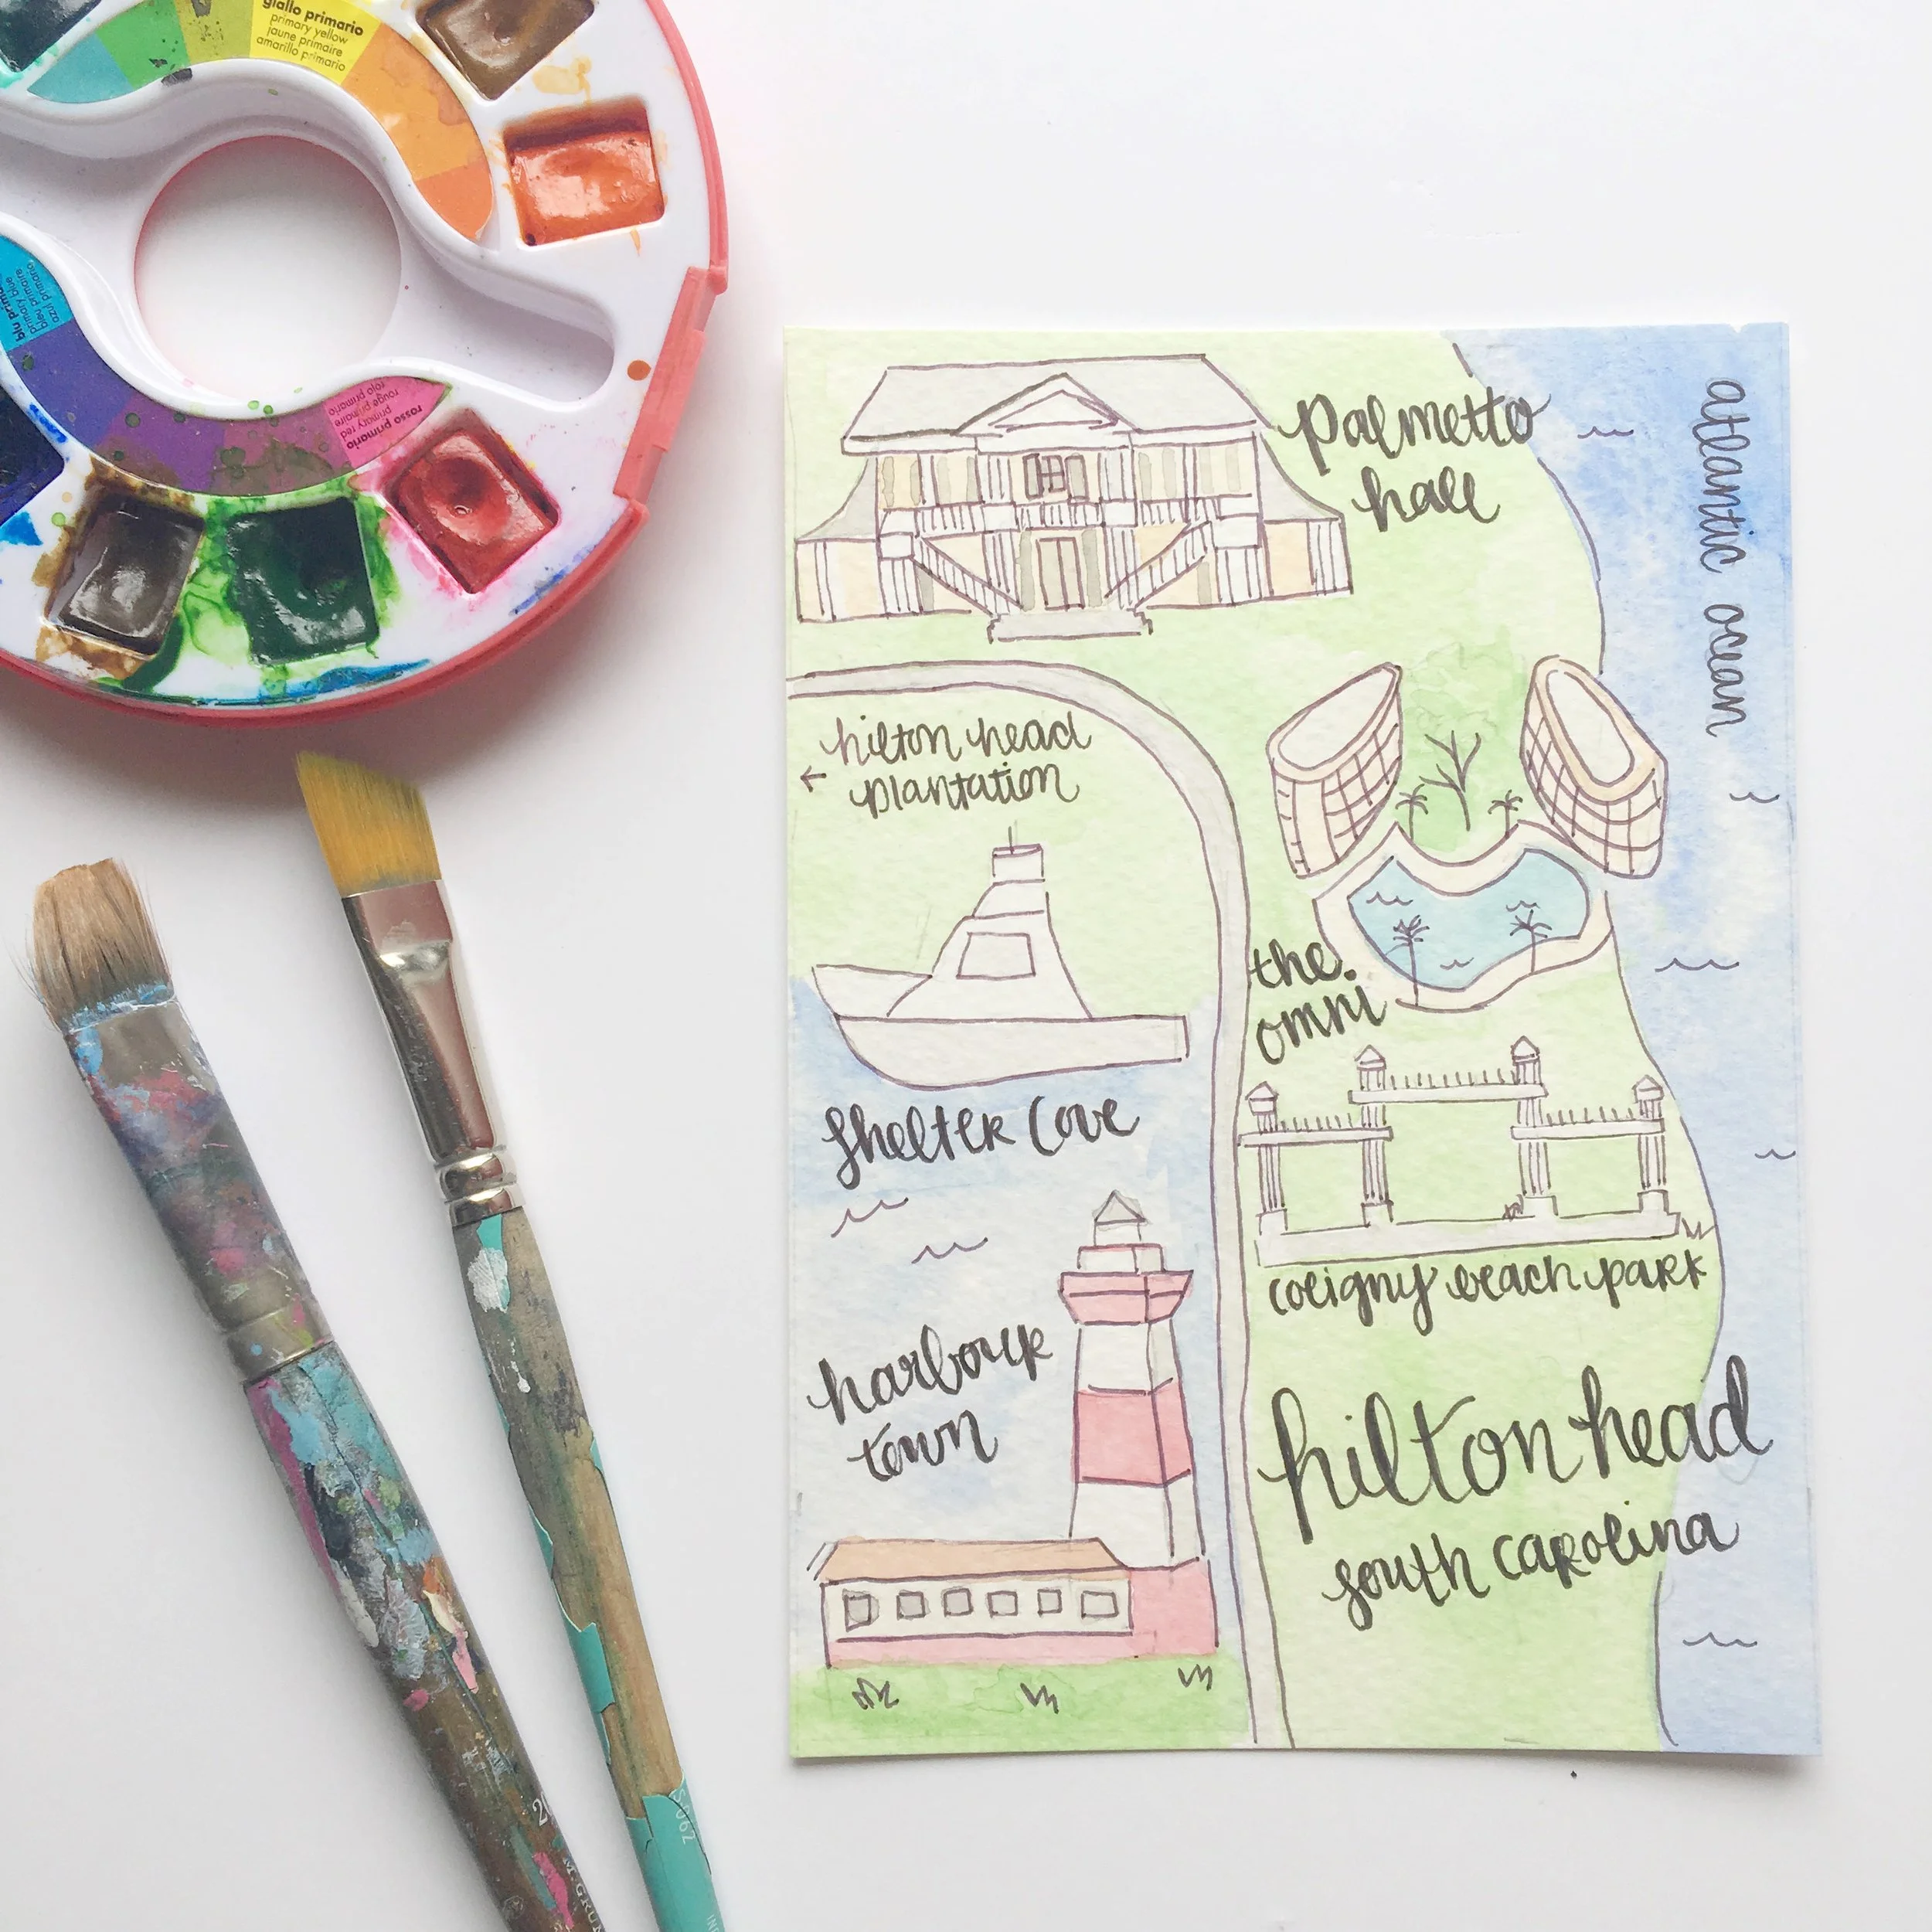 giallo primario
primary yellow
jaune primaire
amarillo primario
primary blue
bleu primaire
azul primario
rosso primario
primary red
rouge primaire
rojo primario
palmetto
hall
atlantic ocean
hilton head
← plantation
the
omni
shelter cove
coligny beach park
harbour
town
hilton head
south carolina
S062